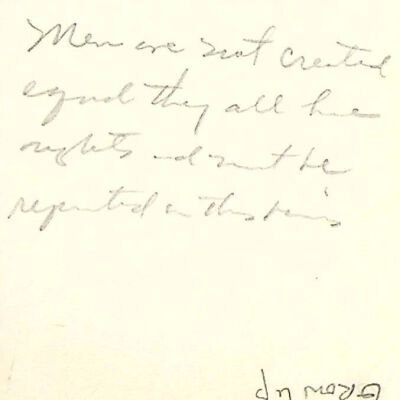 Men are not created
equal they all have
rights and must be
respected on this basis
Grow up